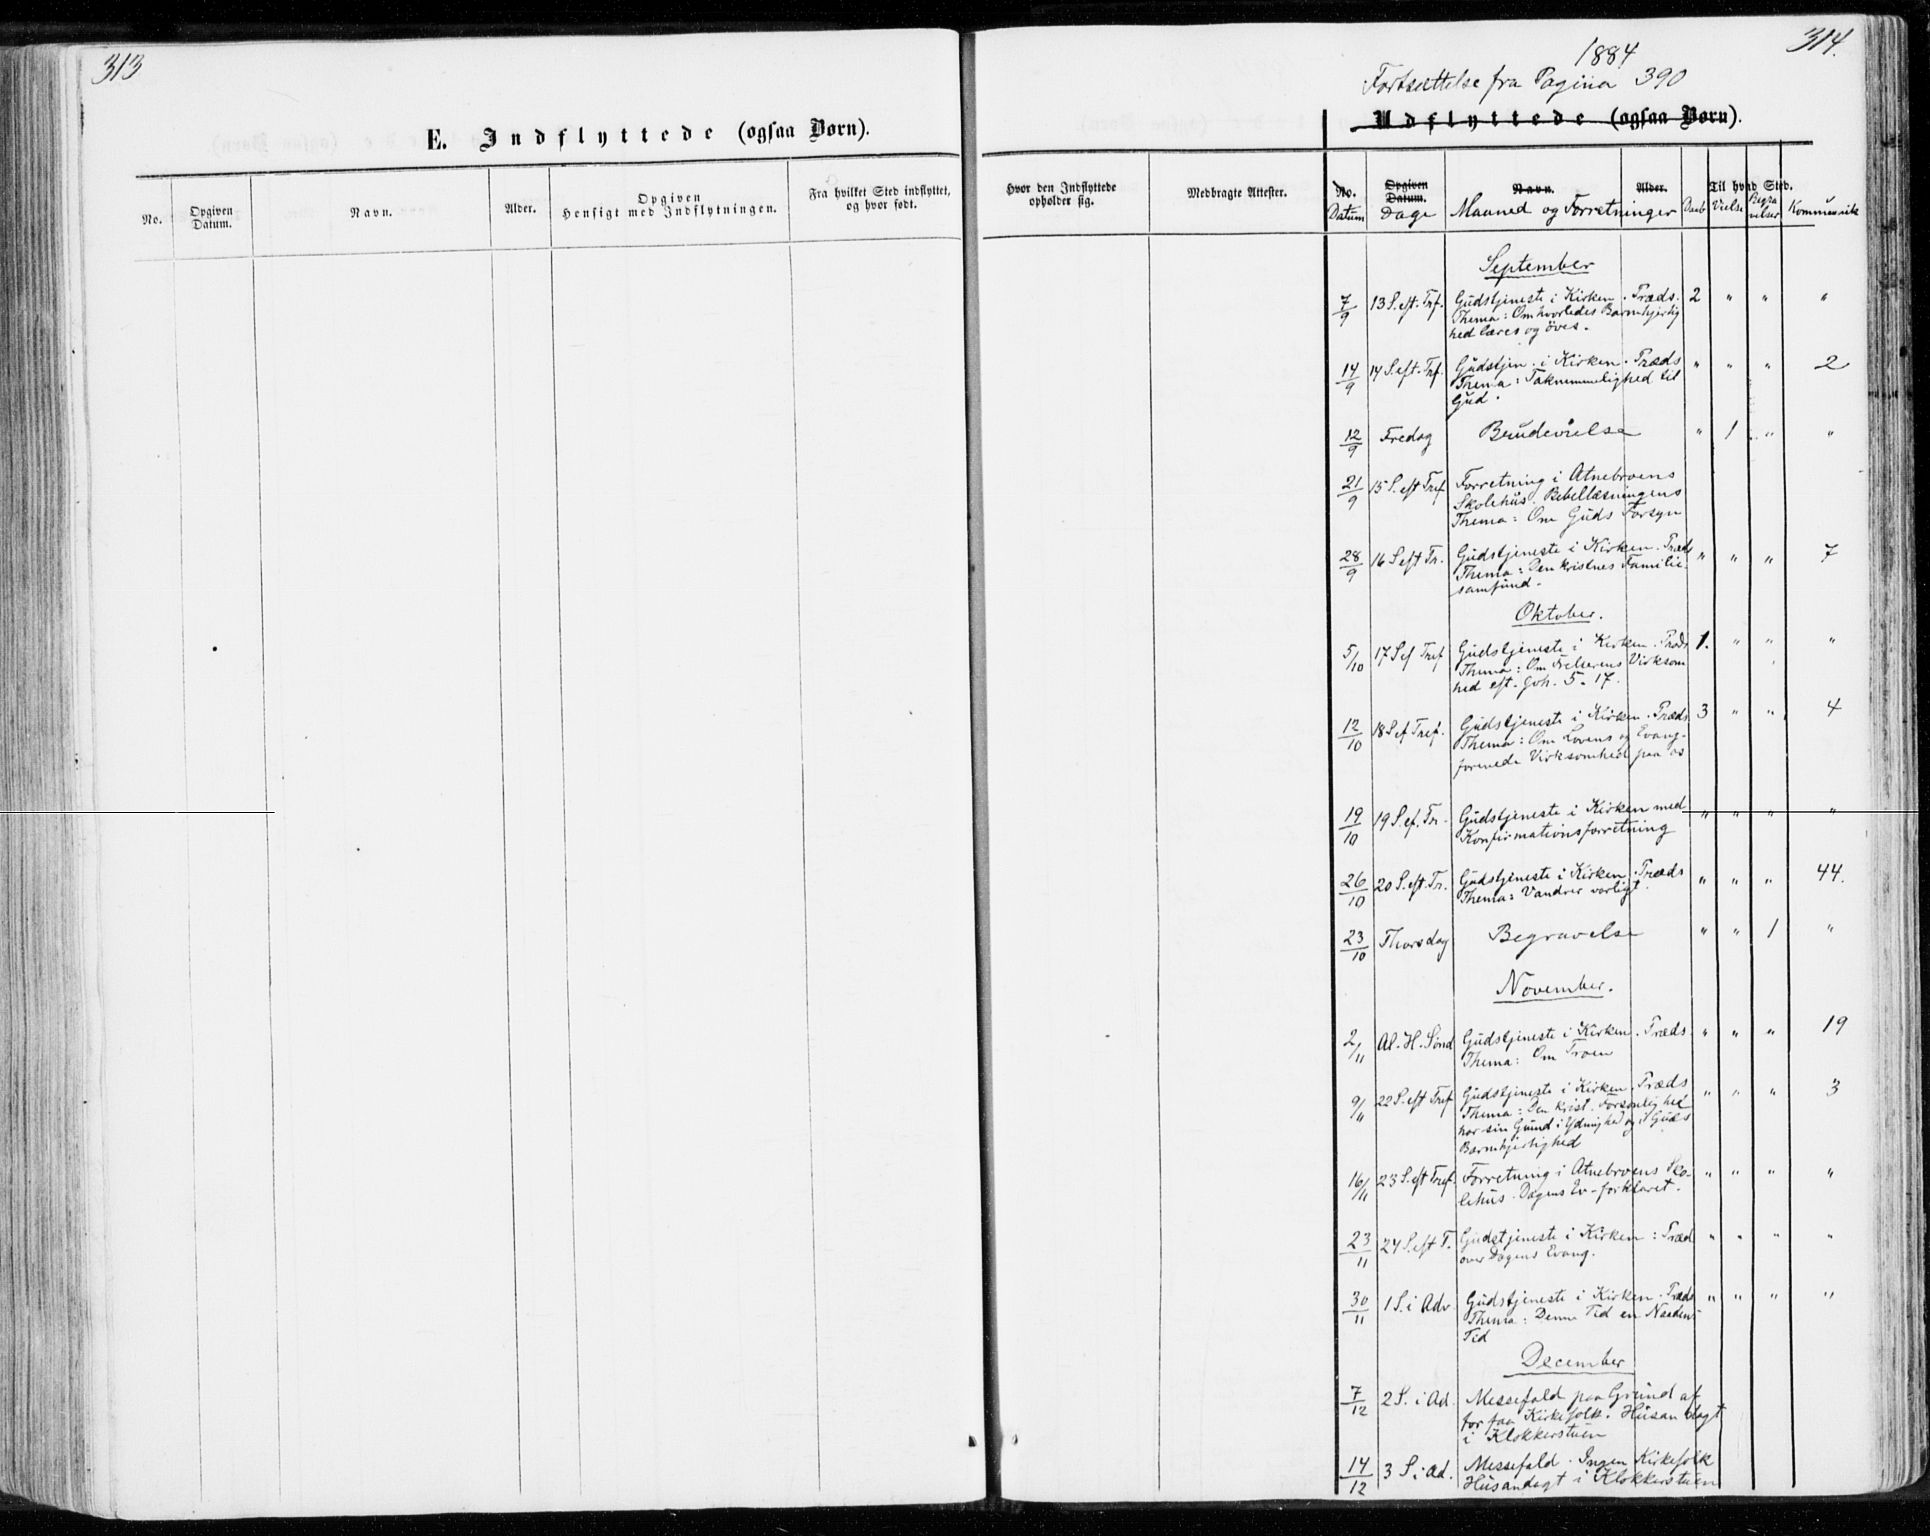 313
E. Indflyttede (ogsaa Børn).
No.
Opgiven
Datum.
Navn.
Alder.
Opgiven
Hensigt med Indflytningen.
Fra hvilket Sted indflyttet,
og hvor født.
314.
1884
Fortsættelse fra Pagina 390
Udflyttede (ogsaa Børn).
Hvor den Indflyttede
opholder sig.
Medbragte Attester.
No.
Datum
Opgiven
Datum.
Dage
Navn.
Maaned og Forretninger
Alder.
Daab
Til hvad Sted.
Vielse
Begravelser
Kommunik
September
7/9 13 S. eft. Trf. Gudstjeneste i Kirken. Præds. 2 " " "
Thema: Om hvorledes Barmhjertig
hed læres og öves.
14/9 14 S. eft. Trf. Gudstjen. i Kirken. Præds " " " 2
Thema: Taknemmelighed til
Gud.
12/9 Fredag Brudevielse " 1 " "
21/9 15 S. eft Tref Forretning i Atnebroens
Skolehus. Bibellæsningens
Thema: Om Guds Forsyn
28/9 16 S eft Tr. Gudstjeneste i Kirken. Præds " " " 7
Thema: Den kristnes Familie-
samfund.
Oktober.
5/10 17 S ef Tref Gudstjeneste i Kirken. Præds 1. " " "
Thema: Om Frelserens Virksom
hed eft. Joh. 5. 17.
12/10 18 S ef Tref. Gudstjeneste i Kirken. Præds 3 " " 4
Thema: Om Lovens og Evang-
forenede Virksomhed paa os
19/10 19 S. ef. Tr. Gudstjeneste i Kirken med " " " "
Konfirmationsforretning
26/10 20 S. eft. Tr. Gudstjeneste i Kirken. Præds " " " 44.
Thema: Vandrer varligt.
23/10 Thorsdag Begravelse " " 1 "
November.
2/11 Al. H. Sönd Gudstjeneste i Kirken. Præds " " " 19
Thema: Om Troen
9/11 22 S. eft Tref Gudstjeneste i Kirken. Præds " " " 3
Thema: Den krist. Forsonlighed
har sin Grund i Ydmighed og i Guds
Barmhjertighed
16/11 23 S. eft Tref. Forretning i Atnebroens Sko- " " " "
lehus. Dagens Ev- forklaret.
23/11 24 S. eft T. Gudstjeneste i Kirken: Præd " " " "
over Dagens Evang.
30/11 1 S. i Adv Gudstjeneste i Kirken. Præds " " " "
Thema: Denne Tid en Naadens
Tid
December
7/12 2 S. i Ad. Messefald paa Grund af
for faa Kirkefolk. Husandagt
i Klokkerstuen
14/12 3 S. i Ad. Messefald. Ingen Kirkefolk
Husandagt i Klokkerstuen